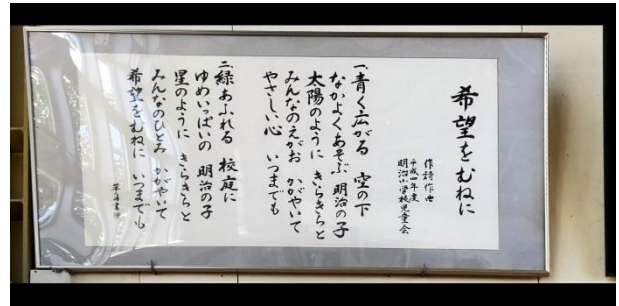 希望をむねに
作詩作曲
平成四年度
明治小学校児童会
一、青く広がる 空の下
なかよくあそぶ 明治の子
太陽のように きらきらと
みんなのえがお かがやいて
やさしい心 いつまでも
二、緑あふれる 校庭に
ゆめいっぱいの 明治の子
星のように きらきらと
みんなのひとみ かがやいて
希望をむねに いつまでも